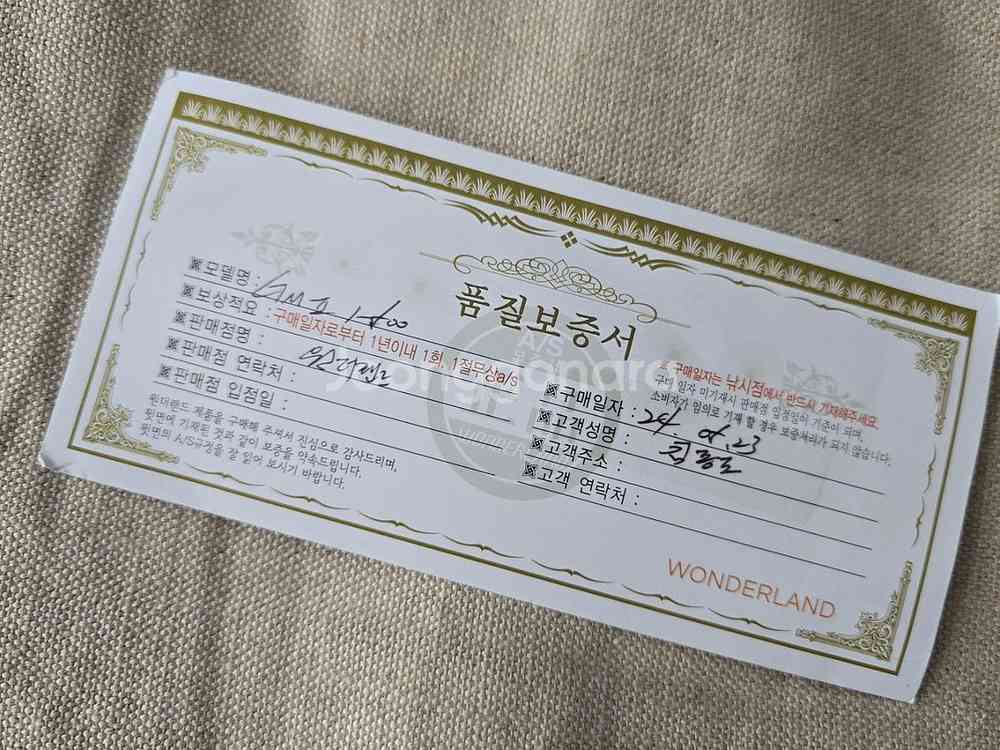 품질보증서
※모델명 : GM II
※보상적요 : 구매일자로부터 1년이내 1회, 1절무상a/s
※판매점명 : 원더랜드
※판매점 연락처 :
※판매점 입점일 :
원더랜드 제품을 구매해 주셔서 진심으로 감사드리며,
뒷면에 기재된 것과 같이 보증을 약속드립니다.
뒷면의 A/S규정을 잘 읽어 보시기 바랍니다.
※구매일자는 낚시점에서 반드시 기재해주세요.
구비 일자 미기재시 판매점 입점일이 기준이 되며,
소비자가 임의로 기재 할 경우 보증처리가 되지 않습니다.
※구매일자 : 24
※고객성명 :
※고객주소 :
※고객 연락처 :
WONDERLAND
A/S
joonggonara